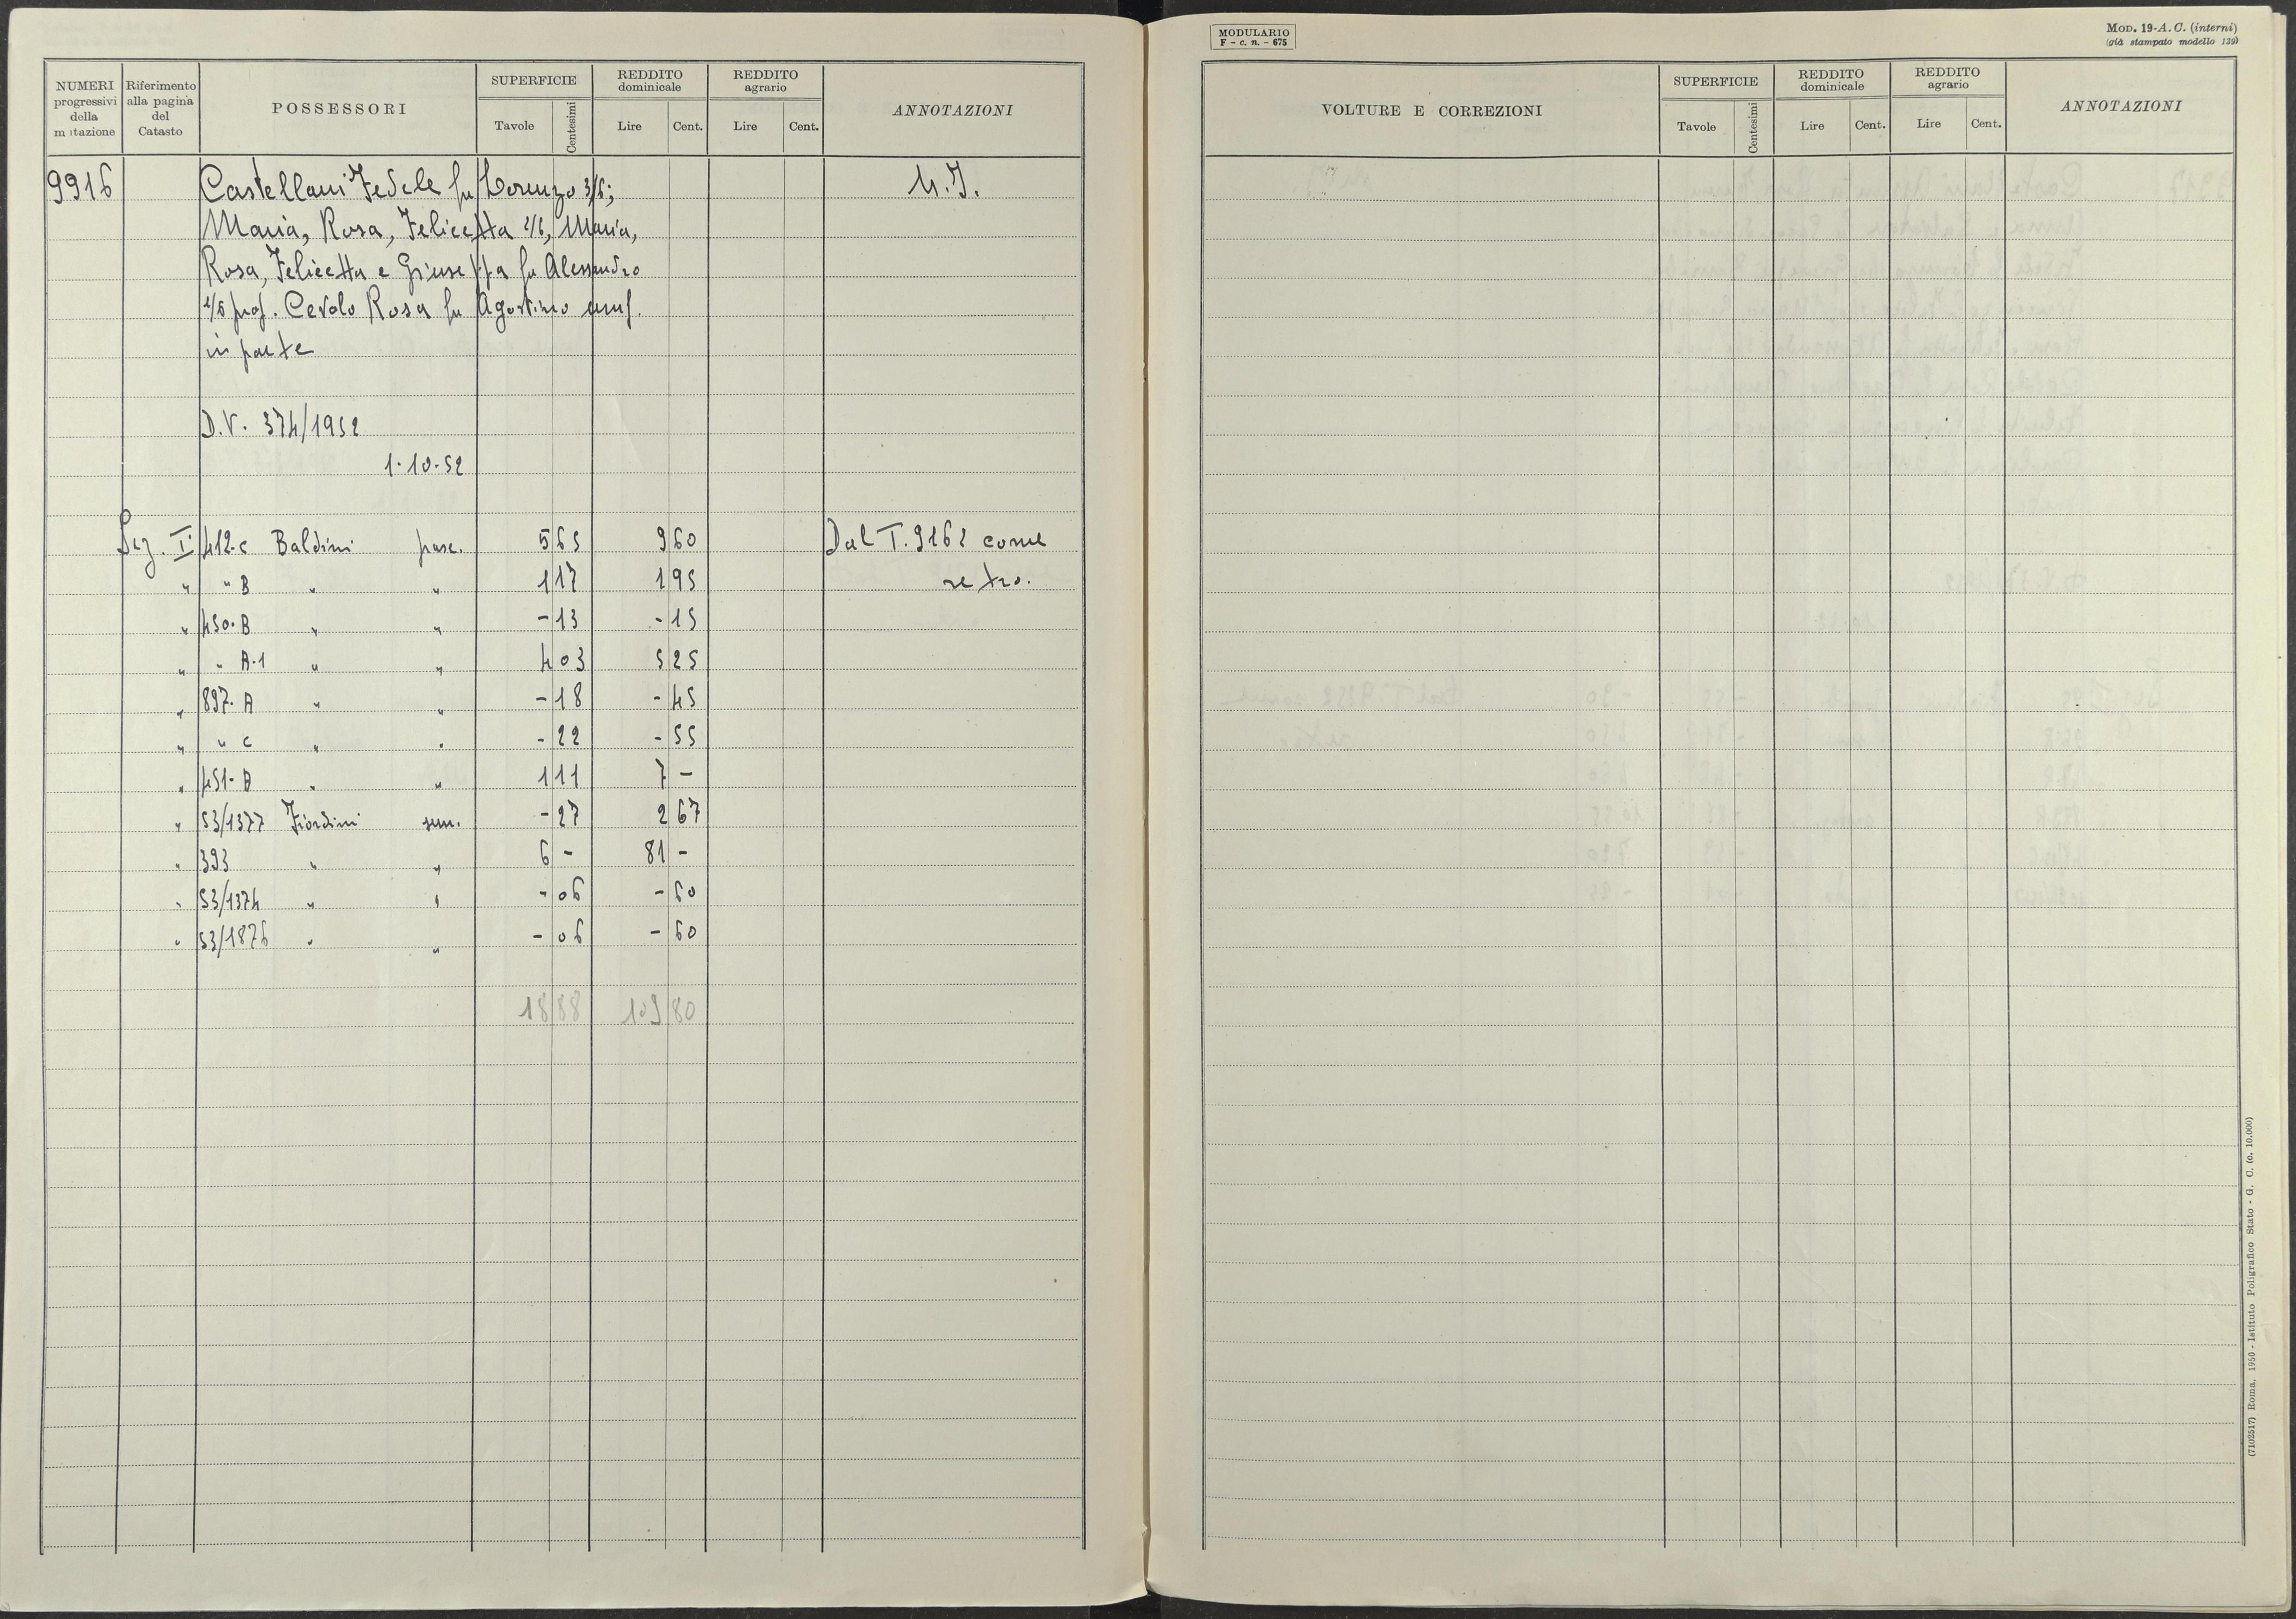 NUMERI progressivi della mutazione | Riferimento alla pagina del Catasto | POSSESSORI | SUPERFICIE Tavole Centesimi | REDDITO dominicale Lire Cent. | REDDITO agrario Lire Cent. | ANNOTAZIONI
9916 Castellani Fedele fu Lorenzo 3/6; U.I.
Maria, Rosa, Felicetta 2/6, Maria,
Rosa, Felicetta e Giuseppa fu Alessandro
1/6 prop. Cedolo Rosa fu Agostino usuf.
in parte
D.V. 374/1952
1-10-52
Sez. I 412-c Baldini pasc. 5 65 9 60 Dal T. 9162 come
" " B " " 1 17 1 95 retro.
" 450-B " " - 13 - 15
" " A-1 " " 4 03 5 25
" 897-A " " - 18 - 45
" " c " " - 22 - 55
" 451-A " " 1 11 7 -
" 53/1377 Fiordini sem. - 27 2 67
" 393 " " 6 - 81 -
" 53/1374 " " - 06 - 60
" 53/1876 " " - 06 - 60
18 88 109 80
MODULARIO
F - c. n. - 675
MOD. 19-A. C. (interni)
(già stampato modello 139)
VOLTURE E CORREZIONI | SUPERFICIE Tavole Centesimi | REDDITO dominicale Lire Cent. | REDDITO agrario Lire Cent. | ANNOTAZIONI
(7102517) Roma, 1950 - Istituto Poligrafico Stato - G. C. (c. 10.000)